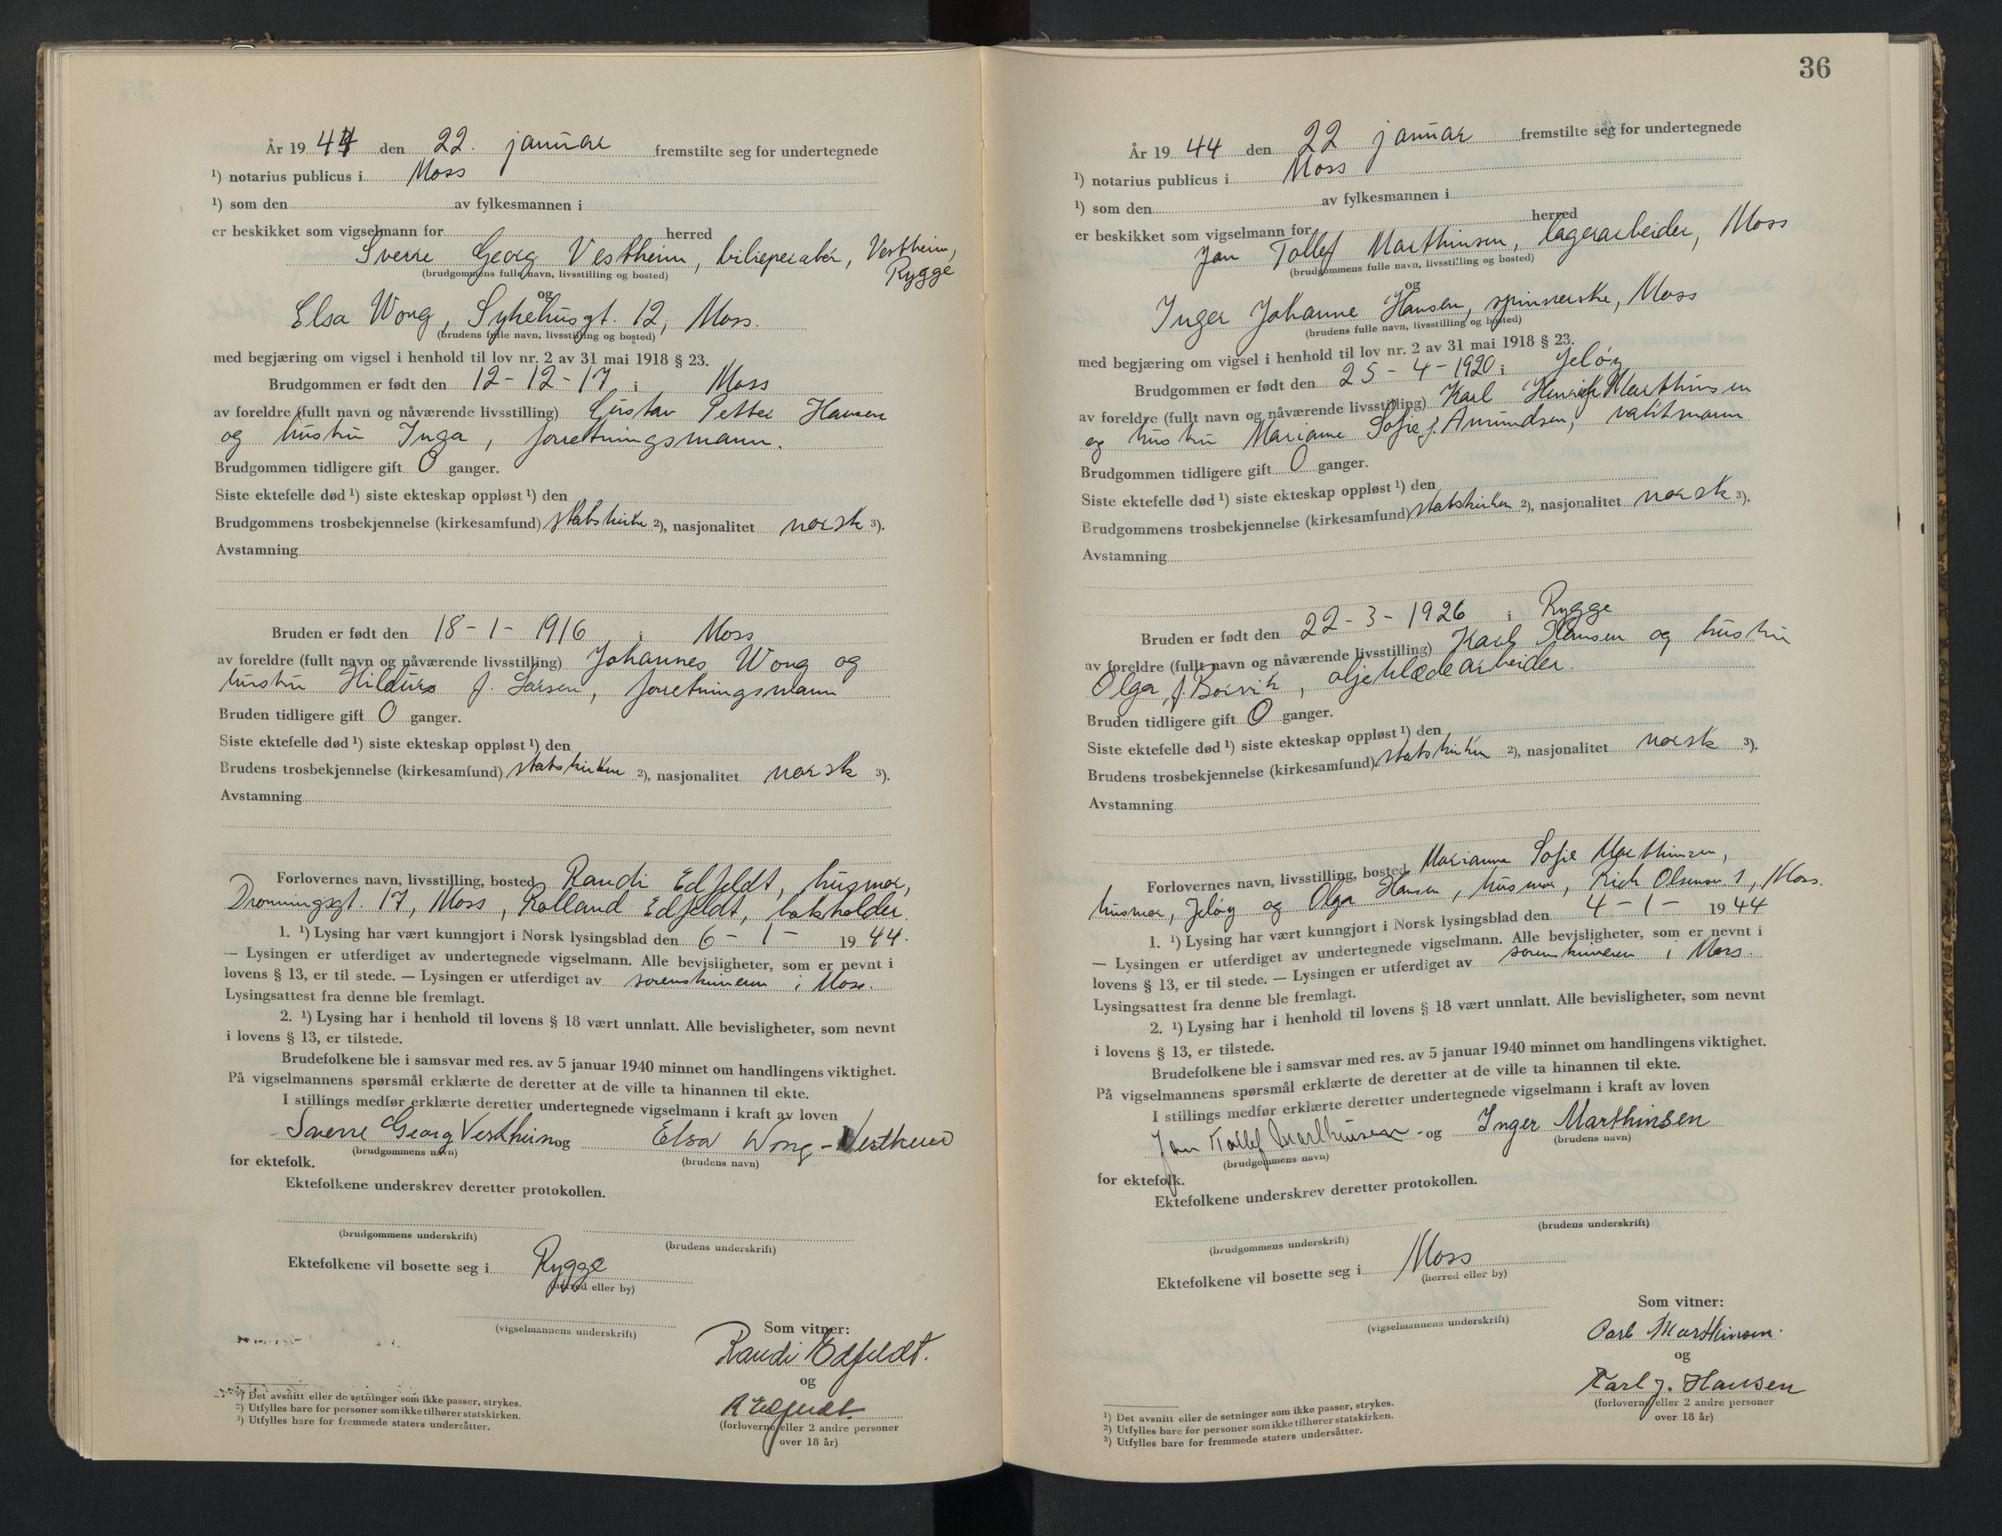 År 1944 den 22. januar fremstilte seg for undertegnede
¹) notarius publicus i Moss
¹) som den av fylkesmannen i
er beskikket som vigselmann for herred
Sverre Georg Vestheim, bilreperatør, Vestheim,
(brudgommens fulle navn, livsstilling og bosted)
Rygge
og
Elsa Wong, Sykehusgt. 12, Moss.
(brudens fulle navn, livsstilling og bosted)
med begjæring om vigsel i henhold til lov nr. 2 av 31 mai 1918 § 23.
Brudgommen er født den 12-12-17 i Moss
av foreldre (fullt navn og nåværende livsstilling) Gustav Petter Hansen
og hustru Inga, forretningsmann.
Brudgommen tidligere gift 0 ganger.
Siste ektefelle død ¹) siste ekteskap oppløst ¹) den
Brudgommens trosbekjennelse (kirkesamfund) statskirke ²), nasjonalitet norsk ³).
Avstamning
Bruden er født den 18-1-1916 i Moss
av foreldre (fullt navn og nåværende livsstilling) Johannes Wong og
hustru Hildur f. Larsen, forretningsmann
Bruden tidligere gift 0 ganger.
Siste ektefelle død ¹) siste ekteskap oppløst ¹) den
Brudens trosbekjennelse (kirkesamfund) statskirken ²), nasjonalitet norsk ³).
Avstamning
Forlovernes navn, livsstilling, bosted Randi Edfeldt, husmor,
Dronningsgt. 17, Moss, Rolland Edfeldt, bokholder.
1. ¹) Lysing har vært kunngjort i Norsk lysingsblad den 6-1- 1944.
— Lysingen er utferdiget av undertegnede vigselmann. Alle bevisligheter, som er nevnt i
lovens § 13, er til stede. — Lysingen er utferdiget av sorenskriveren i Moss.
Lysingsattest fra denne ble fremlagt.
2. ¹) Lysing har i henhold til lovens § 18 vært unnlatt. Alle bevisligheter, som nevnt
i lovens § 13, er tilstede.
Brudefolkene ble i samsvar med res. av 5 januar 1940 minnet om handlingens viktighet.
På vigselmannens spørsmål erklærte de deretter at de ville ta hinannen til ekte.
I stillings medfør erklærte deretter undertegnede vigselmann i kraft av loven
Sverre Georg Vestheim og Elsa Wong - Vestheim
(brudgommens navn) (brudens navn)
for ektefolk.
Ektefolkene underskrev deretter protokollen.
(brudgommens underskrift) (brudens underskrift)
Ektefolkene vil bosette seg i Rygge
(herred eller by)
(vigselmannens underskrift)
Som vitner:
Randi Edfeldt.
og
R Edfeldt.
(forloverne eller 2 andre personer
over 18 år)
¹) Det avsnitt eller de setninger som ikke passer, strykes.
²) Utfylles bare for personer som ikke tilhører statskirken.
³) Utfylles bare for fremmede staters undersåtter.
36
År 1944 den 22 januar fremstilte seg for undertegnede
¹) notarius publicus i Moss
¹) som den av fylkesmannen i
er beskikket som vigselmann for herred
Jan Tollef Marthinsen, lagerarbeider, Moss
(brudgommens fulle navn, livsstilling og bosted)
og
Inger Johanne Hansen, spinnerske, Moss
(brudens fulle navn, livsstilling og bosted)
med begjæring om vigsel i henhold til lov nr. 2 av 31 mai 1918 § 23.
Brudgommen er født den 25-4-1920 i Jeløy
av foreldre (fullt navn og nåværende livsstilling) Karl Henrik Marthinsen
og hustru Marianne Sofie f. Amundsen, vaktmann
Brudgommen tidligere gift 0 ganger.
Siste ektefelle død ¹) siste ekteskap oppløst ¹) den
Brudgommens trosbekjennelse (kirkesamfund) statskirken ²), nasjonalitet norsk ³).
Avstamning
Bruden er født den 22-3-1926 i Rygge
av foreldre (fullt navn og nåværende livsstilling) Karl Hansen og hustru
Olga f. Borvik, oljeklædearbeider.
Bruden tidligere gift 0 ganger.
Siste ektefelle død ¹) siste ekteskap oppløst ¹) den
Brudens trosbekjennelse (kirkesamfund) statskirken ²), nasjonalitet norsk ³).
Avstamning
Forlovernes navn, livsstilling, bosted Marianne Sofie Marthinsen,
husmor, Jeløy og Olga Hansen, husmor, 1, Moss.
1. ¹) Lysing har vært kunngjort i Norsk lysingsblad den 4-1- 1944
— Lysingen er utferdiget av undertegnede vigselmann. Alle bevisligheter, som er nevnt i
lovens § 13, er til stede. — Lysingen er utferdiget av sorenskriveren i Moss.
Lysingsattest fra denne ble fremlagt.
2. ¹) Lysing har i henhold til lovens § 18 vært unnlatt. Alle bevisligheter, som nevnt
i lovens § 13, er tilstede.
Brudefolkene ble i samsvar med res. av 5 januar 1940 minnet om handlingens viktighet.
På vigselmannens spørsmål erklærte de deretter at de ville ta hinannen til ekte.
I stillings medfør erklærte deretter undertegnede vigselmann i kraft av loven
Jan Tollef Marthinsen og Inger Marthinsen
(brudgommens navn) (brudens navn)
for ektefolk.
Ektefolkene underskrev deretter protokollen.
(brudgommens underskrift) (brudens underskrift)
Ektefolkene vil bosette seg i Moss
(herred eller by)
(vigselmannens underskrift)
Som vitner:
Carl Marthinsen.
og
Karl J. Hansen
(forloverne eller 2 andre personer
over 18 år)
¹) Det avsnitt eller de setninger som ikke passer, strykes.
²) Utfylles bare for personer som ikke tilhører statskirken.
³) Utfylles bare for fremmede staters undersåtter.